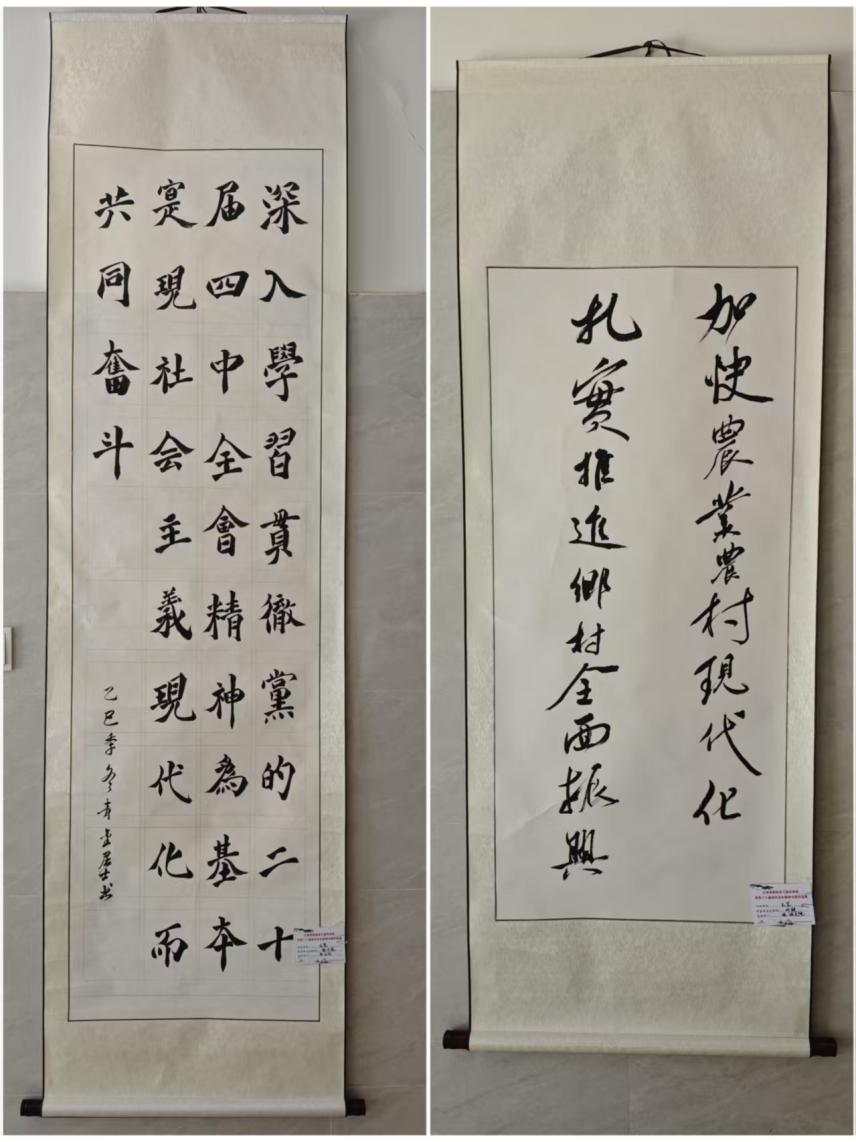 深入學習貫徹黨的二十
届四中全會精神為基本
寔現社会主義現代化而
共同奮斗
乙巳季冬
居士书
加快農業農村現代化
扎實推進鄉村全面振興